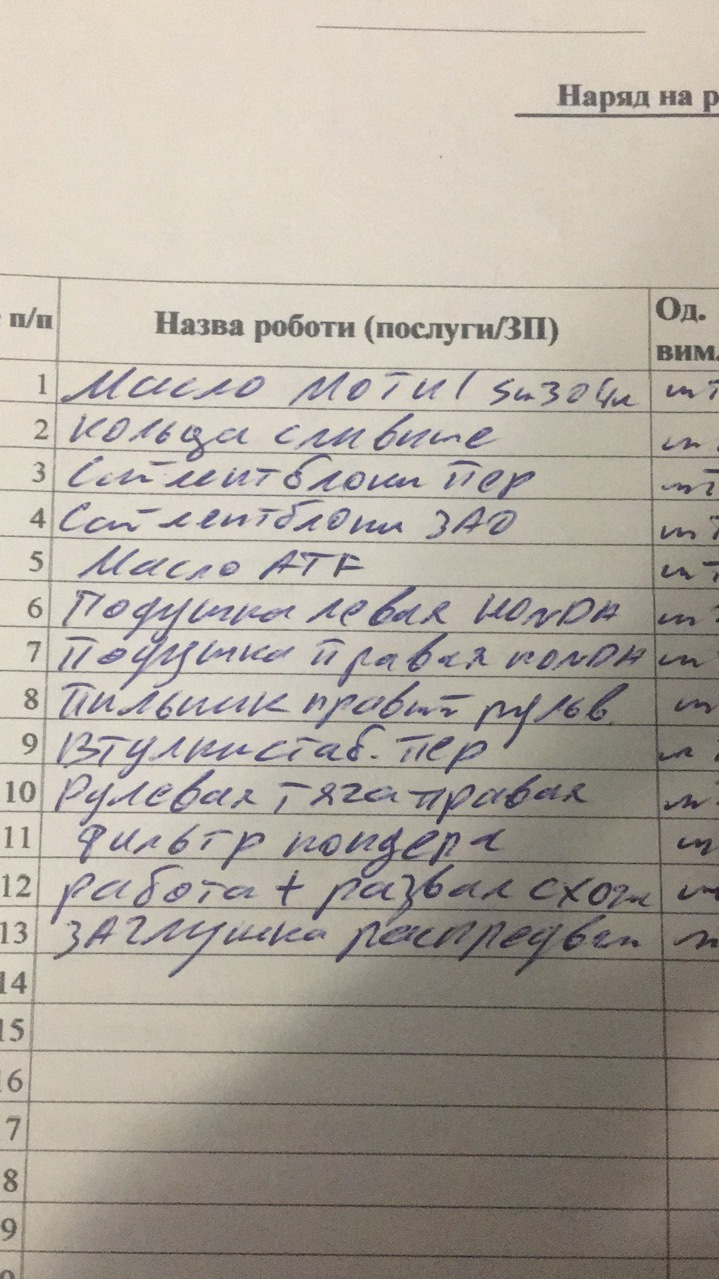 Наряд на р
п/п Назва роботи (послуги/ЗП) Од. вим.
1 Масло Моти 5w30 4л шт
2 кольца сливные ш
3 Сайлентблоки пер шт
4 Сайлентблоки ЗАО шт
5 Масло ATF шт
6 Подушка левая HONDA ш
7 Подушка правая HONDA ш
8 Пильник правый рульв. ш
9 Втулки стаб. пер
10 Рулевая тяга правая ш
11 Фильтр кондера ш
12 работа + развал схож
13 ЗАГлушка распредвал
14
15
16
7
8
9